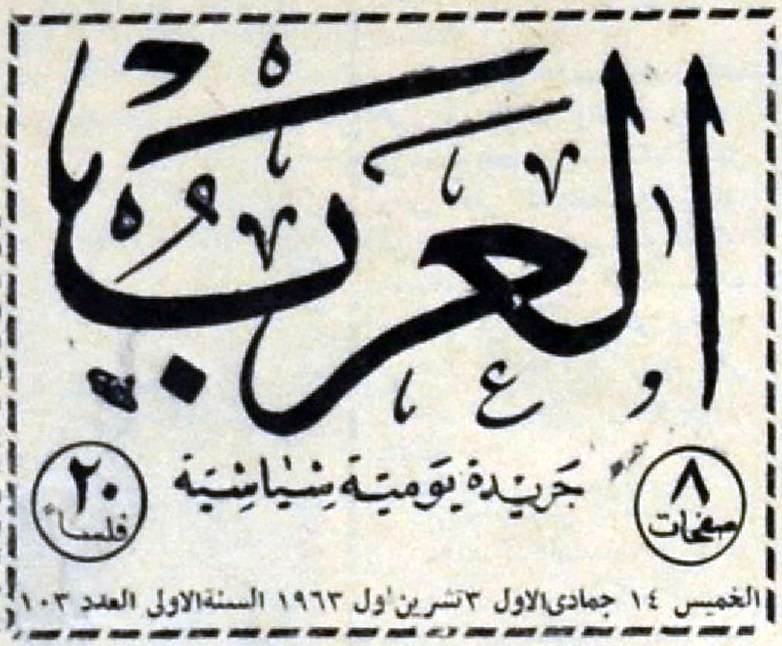 العرب
جريدة يومية سياسية
٨ صفحات
٢٠ فلسا
الخميس ١٤ جمادى الاول ٣ تشرين اول ١٩٦٣ السنة الاولى العدد ١٠٣